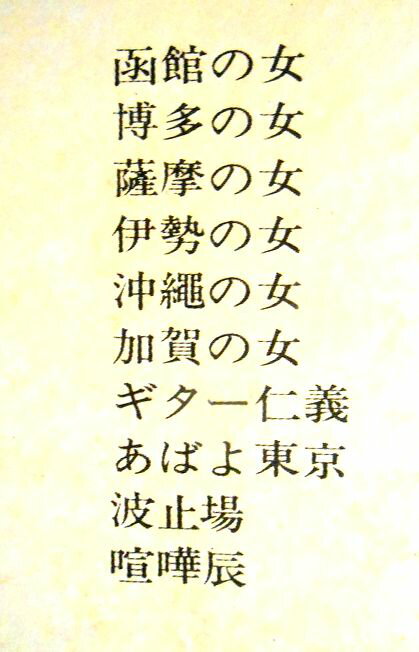 函館の女
博多の女
薩摩の女
伊勢の女
沖繩の女
加賀の女
ギター仁義
あばよ東京
波止場
喧嘩辰